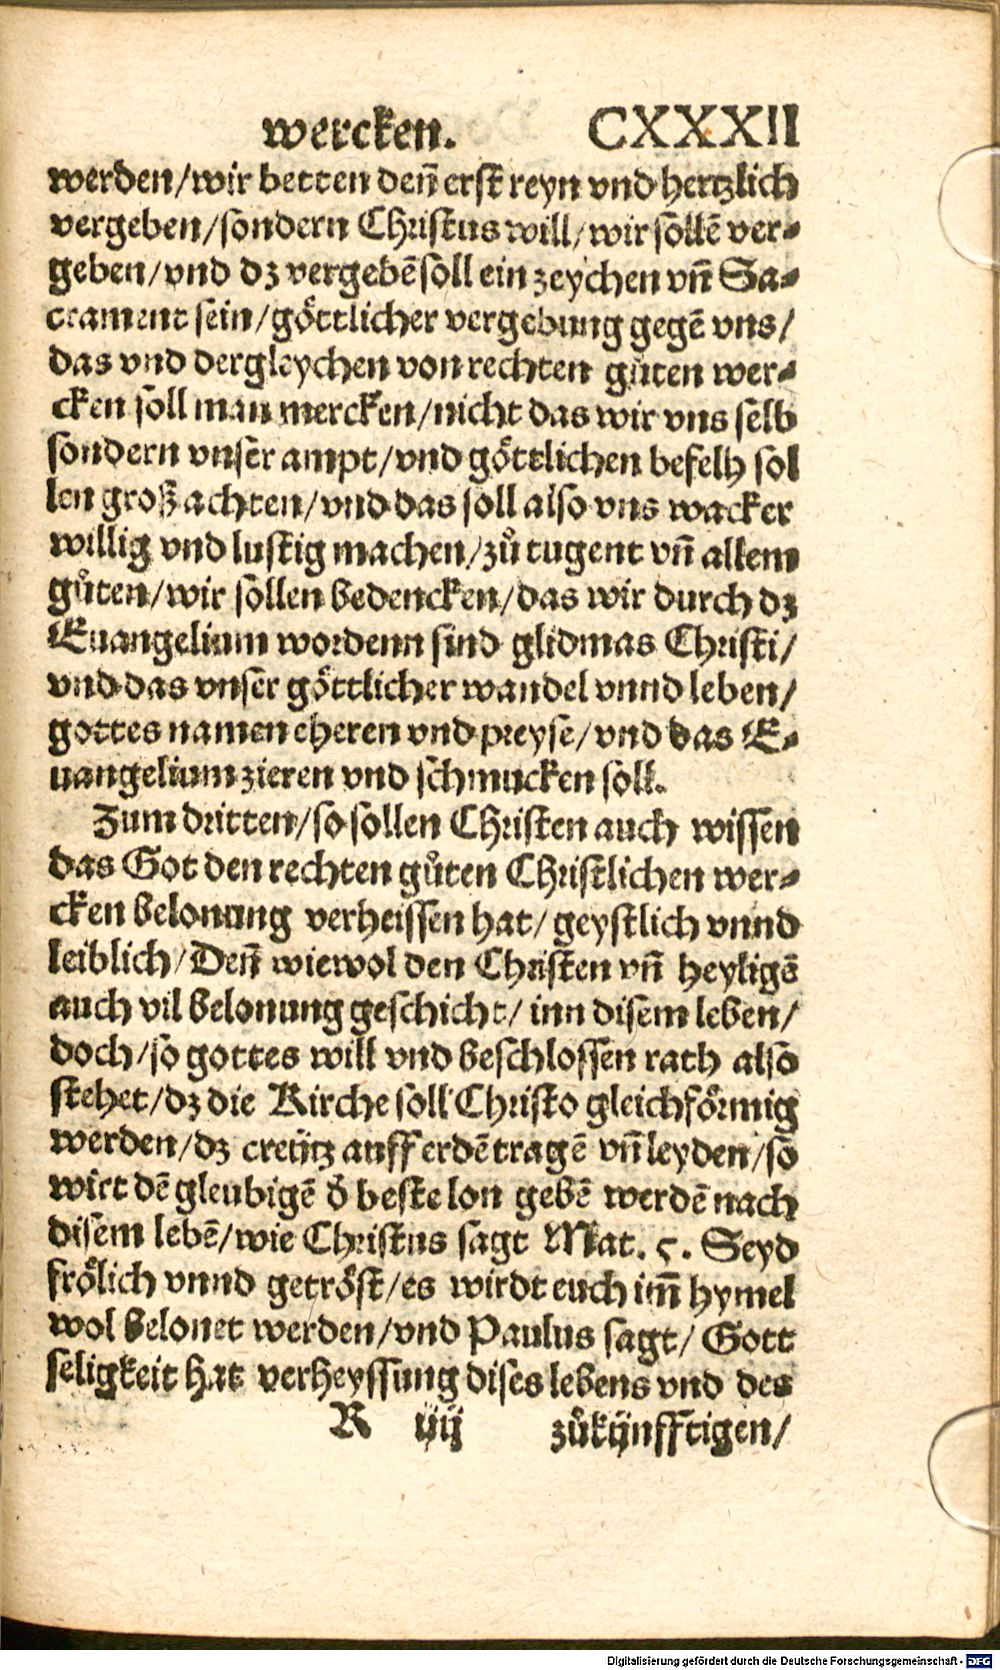 wercken. CXXXII
werden/wir betten deñ erst reyn vnd hertzlich
vergeben/sondern Christus will/wir sollē ver⸗
geben/vnd dz vergebē soll ein zeychen vñ Sa⸗
crament sein/göttlicher vergebung gegē vns/
das vnd dergleychen von rechten gůten wer⸗
cken soll man mercken/nicht das wir vns selb
sondern vnser ampt/vnd göttlichen befelh sol
len groß achten/vnd das soll also vns wacker
willig vnd lustig machen/zů tugent vñ allem
gůten/wir sollen bedencken/das wir durch dz
Euangelium wordenn sind glidmas Christi/
vnd das vnser göttlicher wandel vnnd leben/
gottes namen eheren vnd preyse/vnd das E⸗
uangelium zieren vnd schmucken soll.
Zum dritten/so sollen Christen auch wissen
das Got den rechten gůten Christlichen wer⸗
cken belonung verheissen hat/geystlich vnnd
leiblich/Deñ wiewol den Christen vñ heyligē
auch vil belonung geschicht/inn disem leben/
doch/so gottes will vnd beschlossen rath also
stehet/dz die Kirche soll Christo gleichförmig
werden/dz creütz auff erdē tragē vñ leyden/so
wirt dē gleubigē d̓ beste lon gebē werdē nach
disem lebē/wie Christus sagt Mat. 5. Seyd
frölich vnnd getröst/es wirdt euch im̄ hymel
wol belonet werden/vnd Paulus sagt/Gott
seligkeit hat verheyssung dises lebens vnd des
R iiij zůkünfftigen/
Digitalisierung gefördert durch die Deutsche Forschungsgemeinschaft - DFG